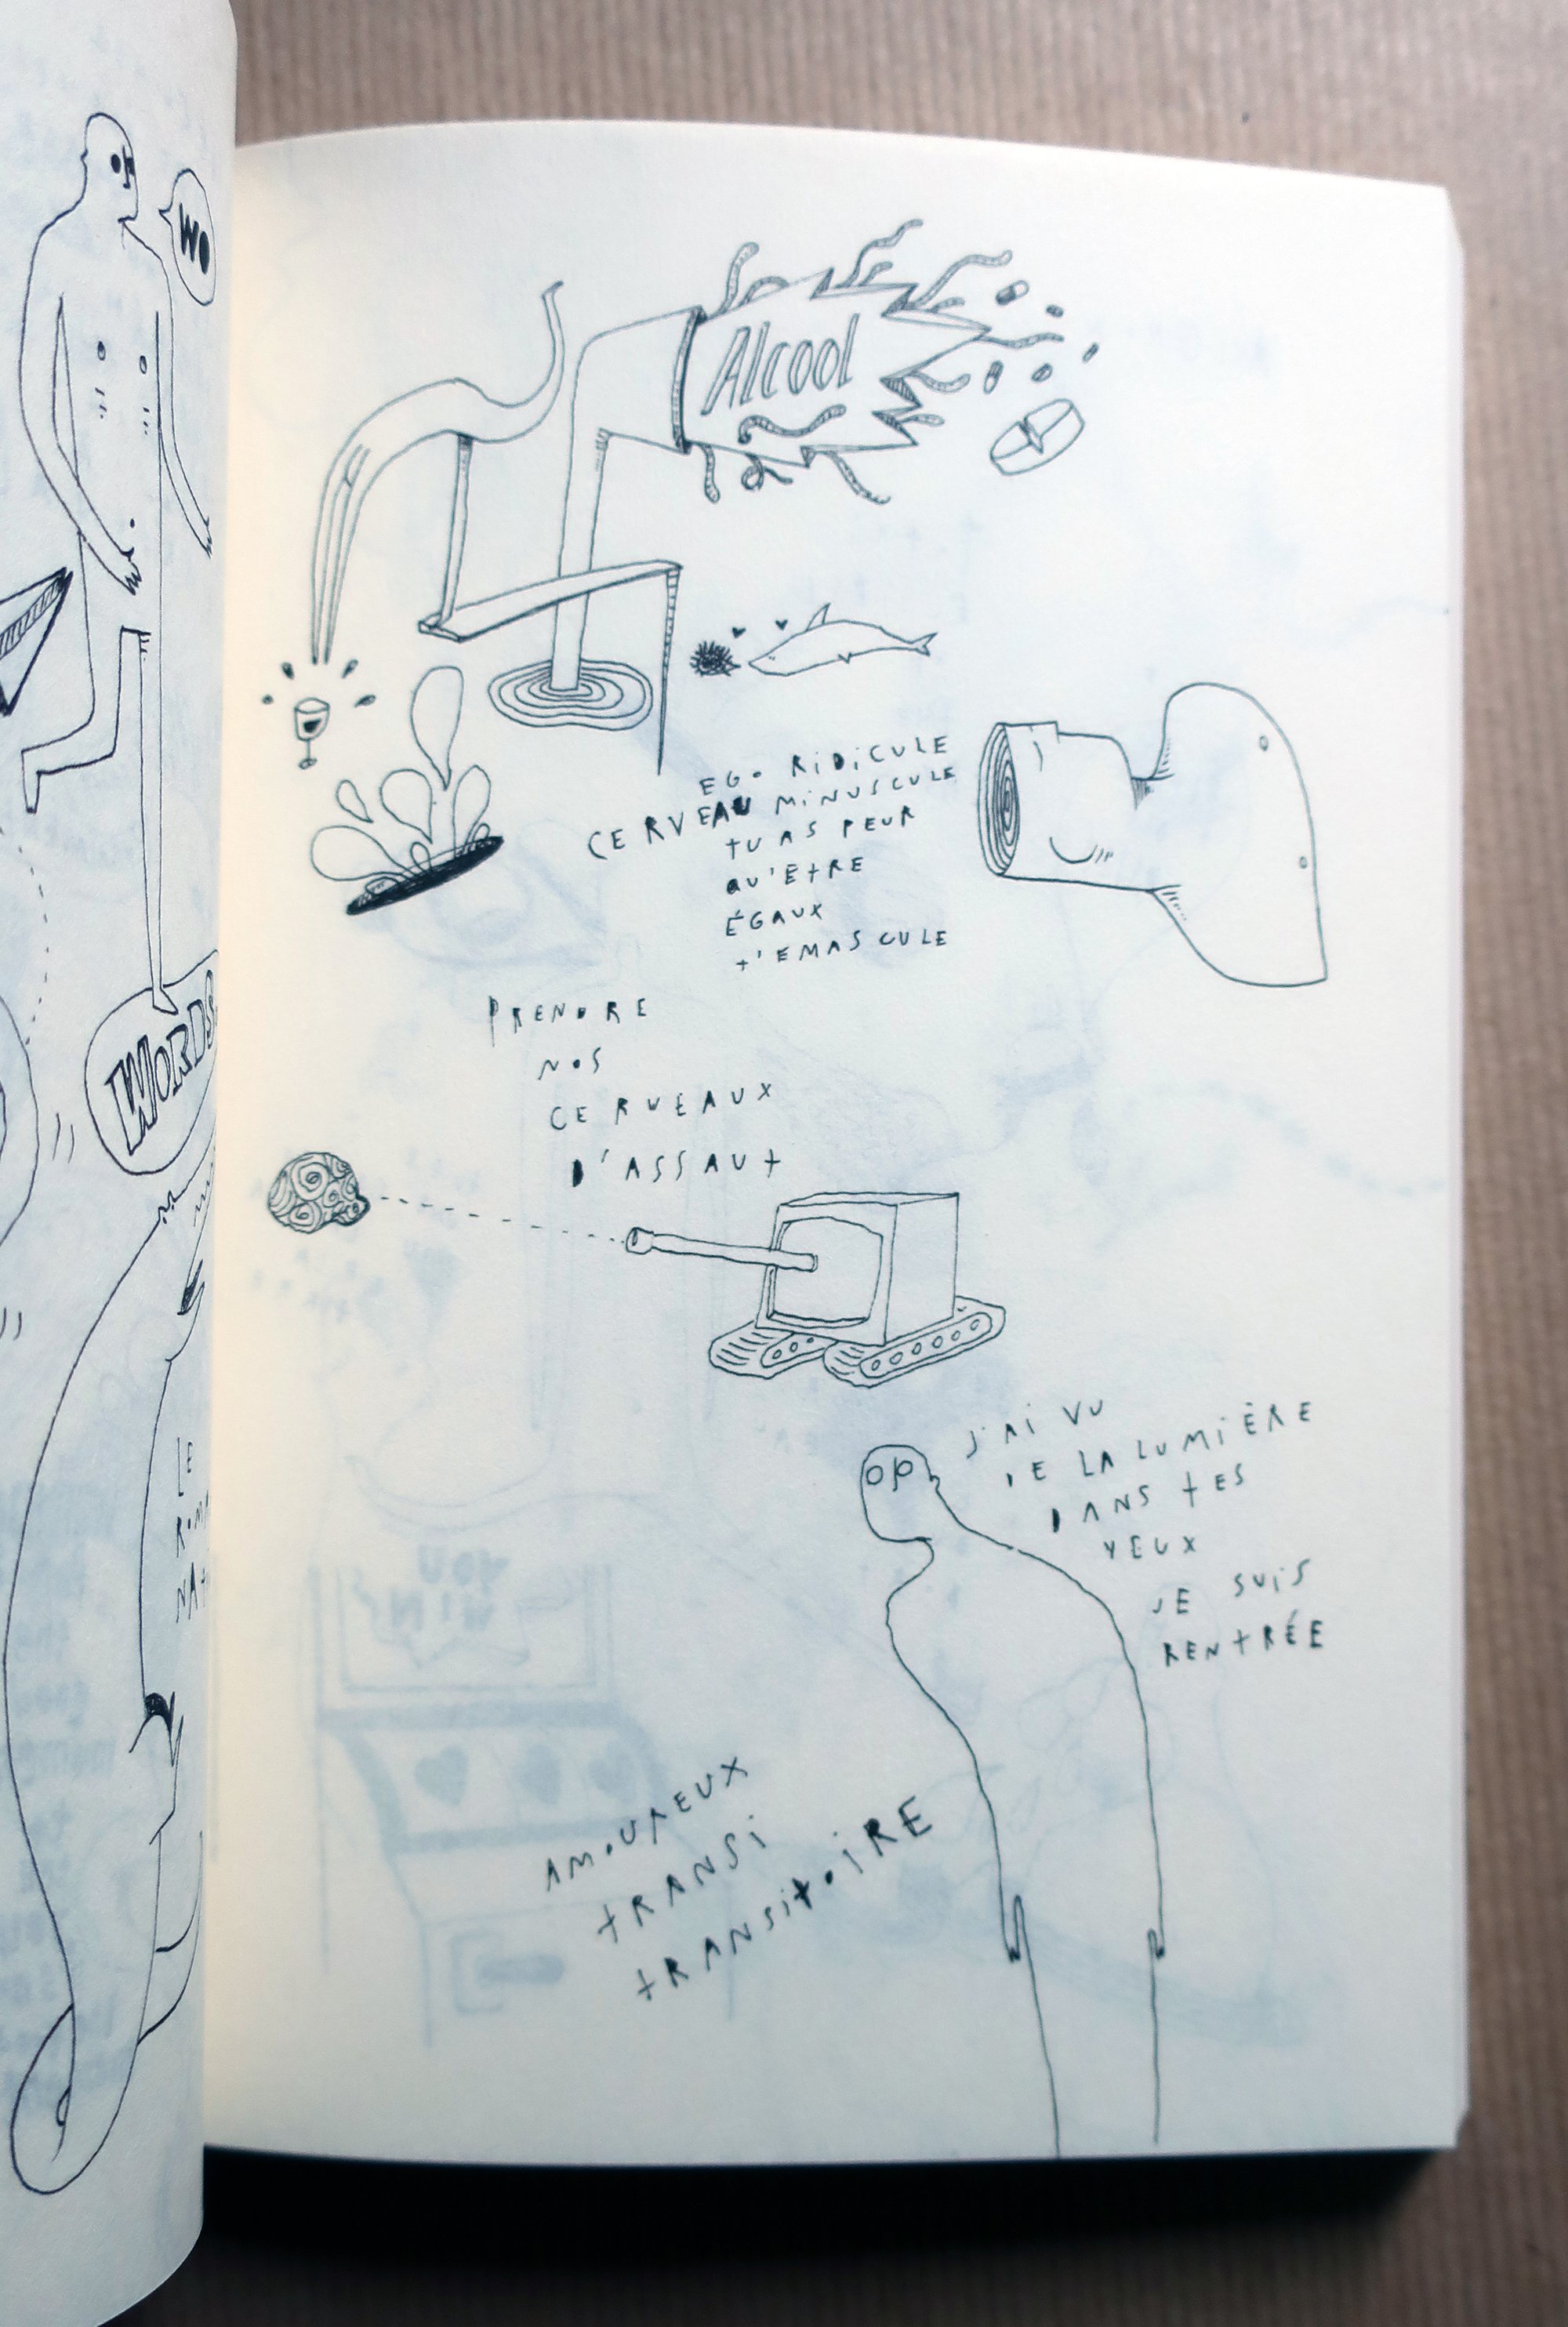 WO
Alcool
EGO RIDICULE
CERVEAU MINUSCULE
TU AS PEUR
QU'ÊTRE
ÉGAUX
T'EMASCULE
PRENDRE
NOS
CERVEAUX
D'ASSAUT
WORDS
J'AI VU
DE LA LUMIÈRE
DANS TES
YEUX
JE SUIS
RENTRÉE
LE
AMOUREUX
TRANSI
TRANSITOIRE